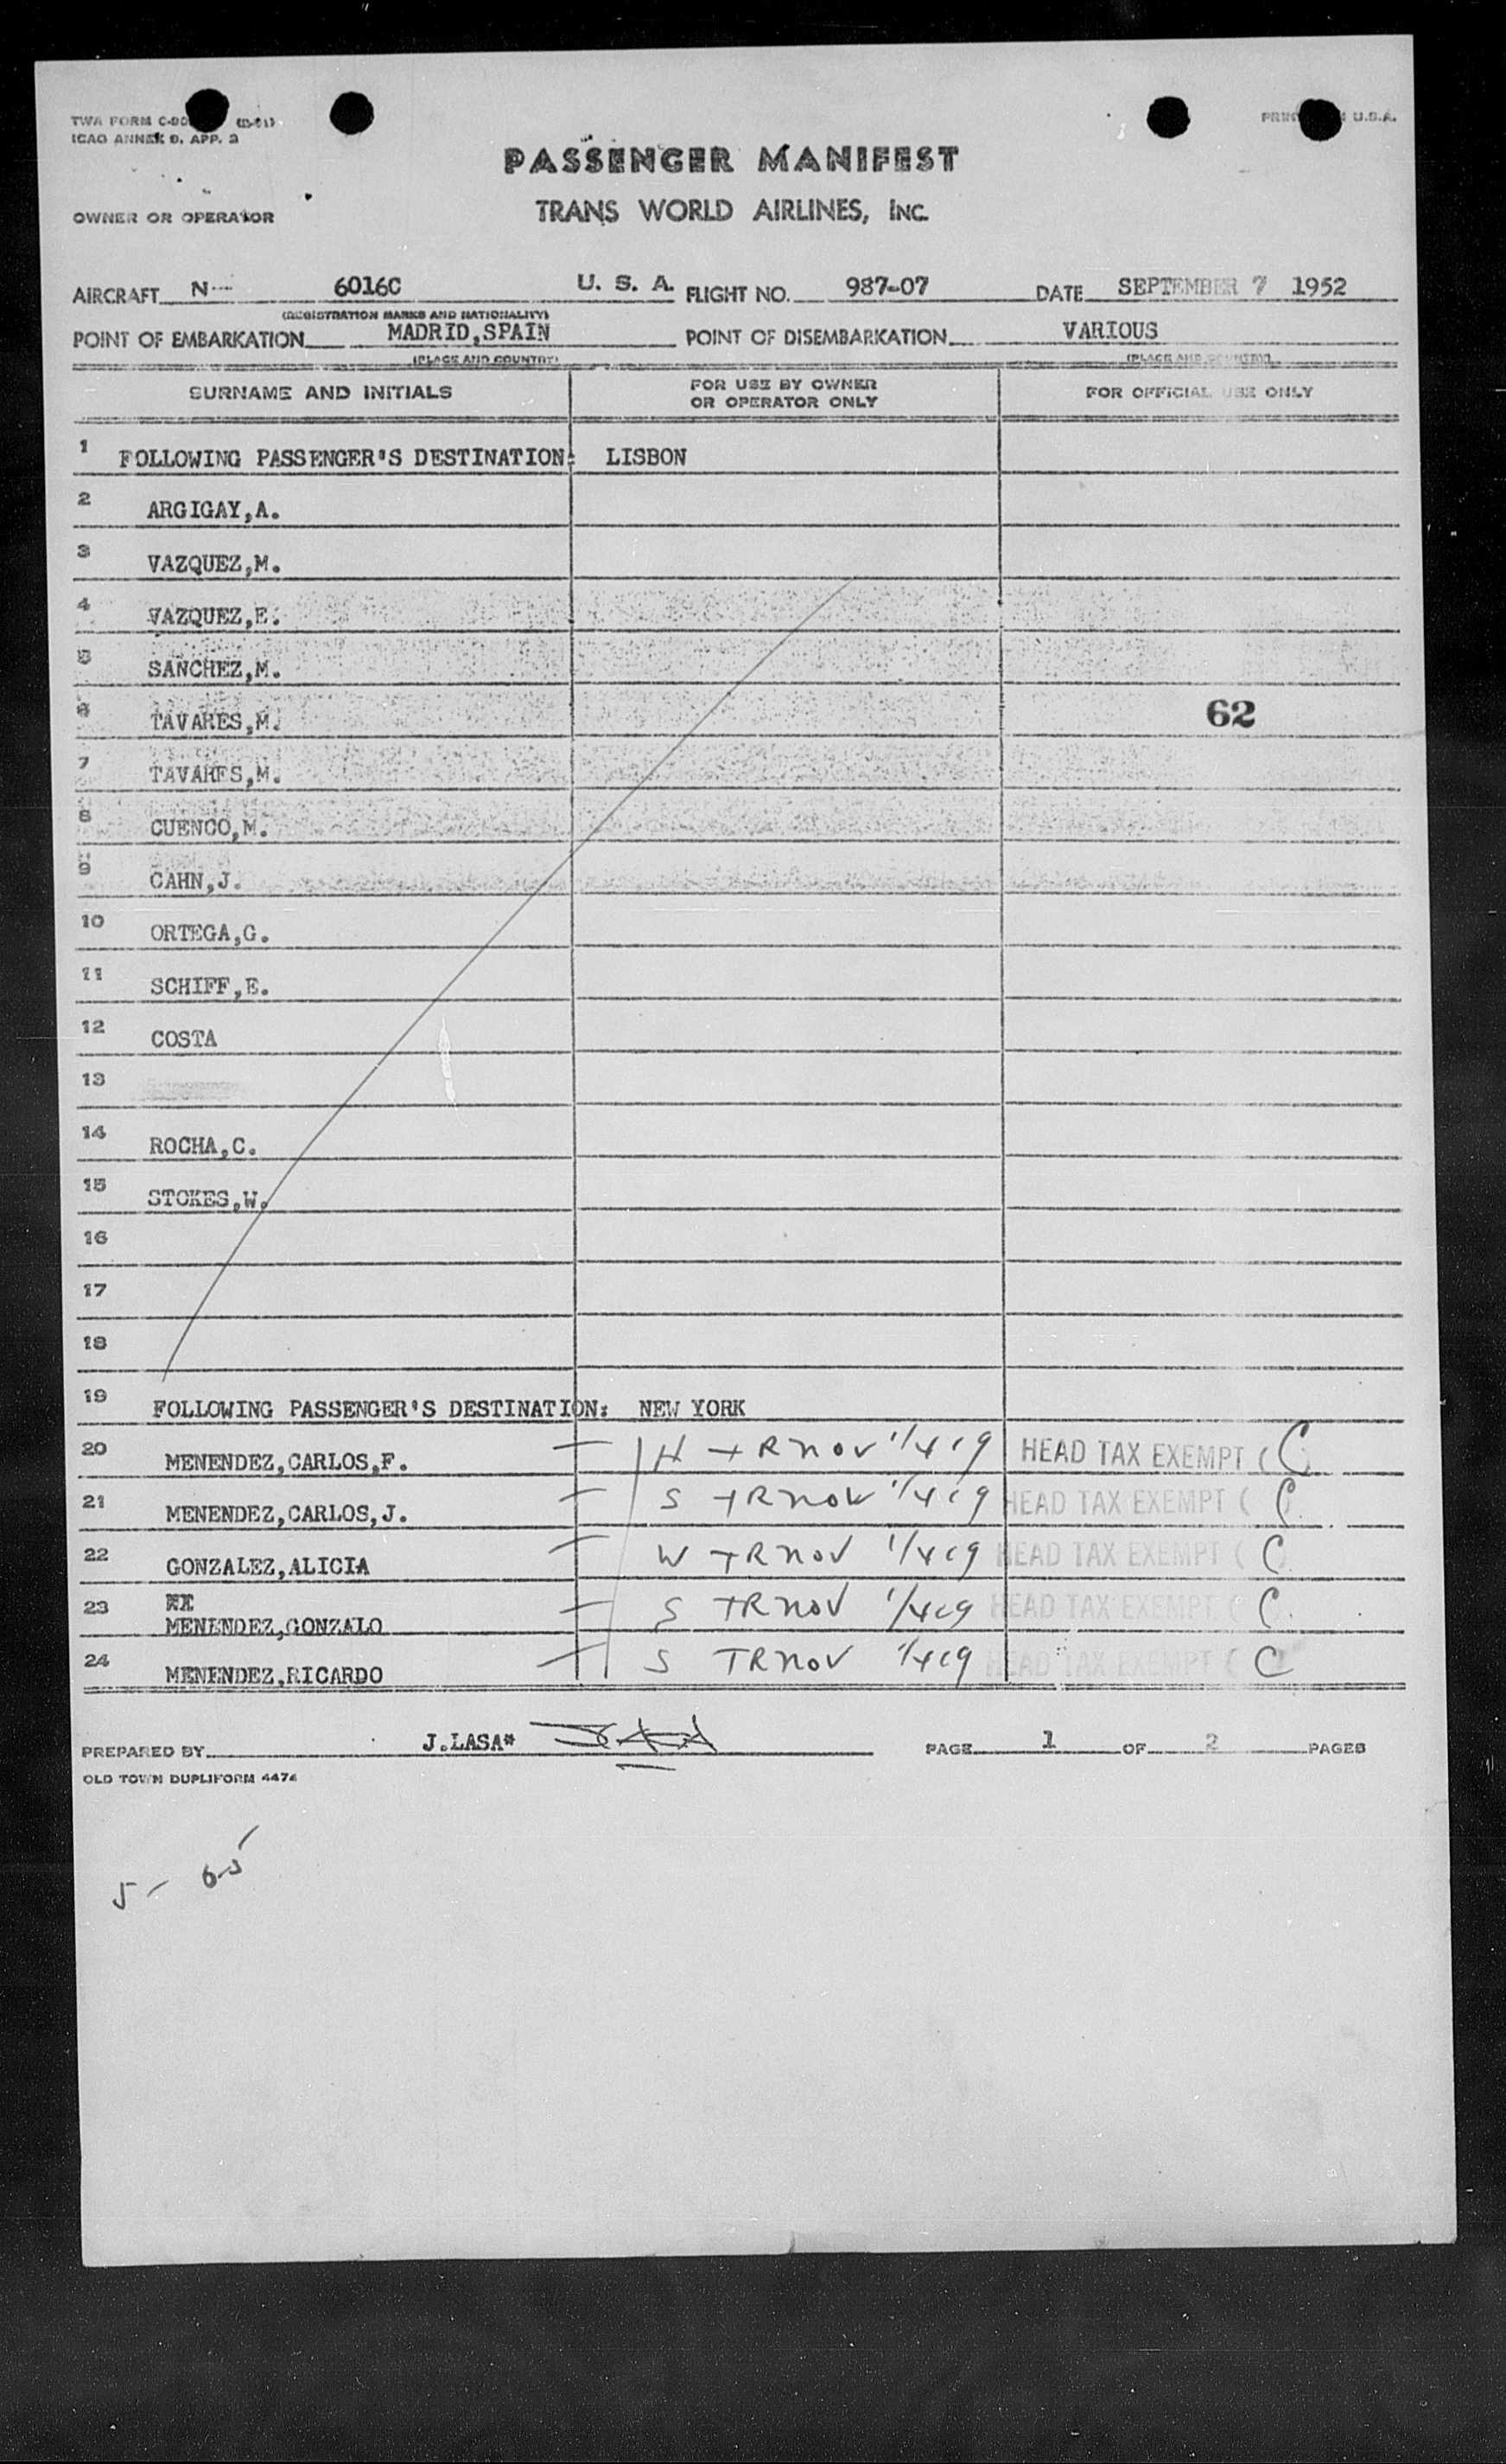 TWA FORM C-90 (2-51)
ICAO ANNEX 9, APP. 3
PRINTED IN U.S.A.
PASSENGER MANIFEST
OWNER OR OPERATOR TRANS WORLD AIRLINES, INC.
AIRCRAFT N-- 6016C U. S. A. FLIGHT NO. 987-07 DATE SEPTEMBER 7 1952
(REGISTRATION MARKS AND NATIONALITY)
POINT OF EMBARKATION MADRID,SPAIN POINT OF DISEMBARKATION VARIOUS
(PLACE AND COUNTRY) (PLACE AND COUNTRY)
SURNAME AND INITIALS FOR USE BY OWNER OR OPERATOR ONLY FOR OFFICIAL USE ONLY
1 FOLLOWING PASSENGER'S DESTINATION: LISBON
2 ARGIGAY,A.
3 VAZQUEZ,M.
4 VAZQUEZ,E.
5 SANCHEZ,M.
6 TAVARES,M. 62
7 TAVARES,M.
8 CUENCO,M.
9 CAHN,J.
10 ORTEGA,G.
11 SCHIFF,E.
12 COSTA
13
14 ROCHA,C.
15 STOKES,W.
16
17
18
19 FOLLOWING PASSENGER'S DESTINATION: NEW YORK
20 MENENDEZ,CARLOS,F. H TR nov 1/4 19 HEAD TAX EXEMPT ( C
21 MENENDEZ,CARLOS,J. S TR nov 1/4 19 HEAD TAX EXEMPT ( C
22 GONZALEZ,ALICIA W TR nov 1/4 19 HEAD TAX EXEMPT ( C
23 MENENDEZ,GONZALO S TR nov 1/4 19 HEAD TAX EXEMPT ( C
24 MENENDEZ,RICARDO S TR nov 1/4 19 HEAD TAX EXEMPT ( C
PREPARED BY J.LASA* PAGE 1 OF 2 PAGES
OLD TOWN DUPLIFORM 4474
5-